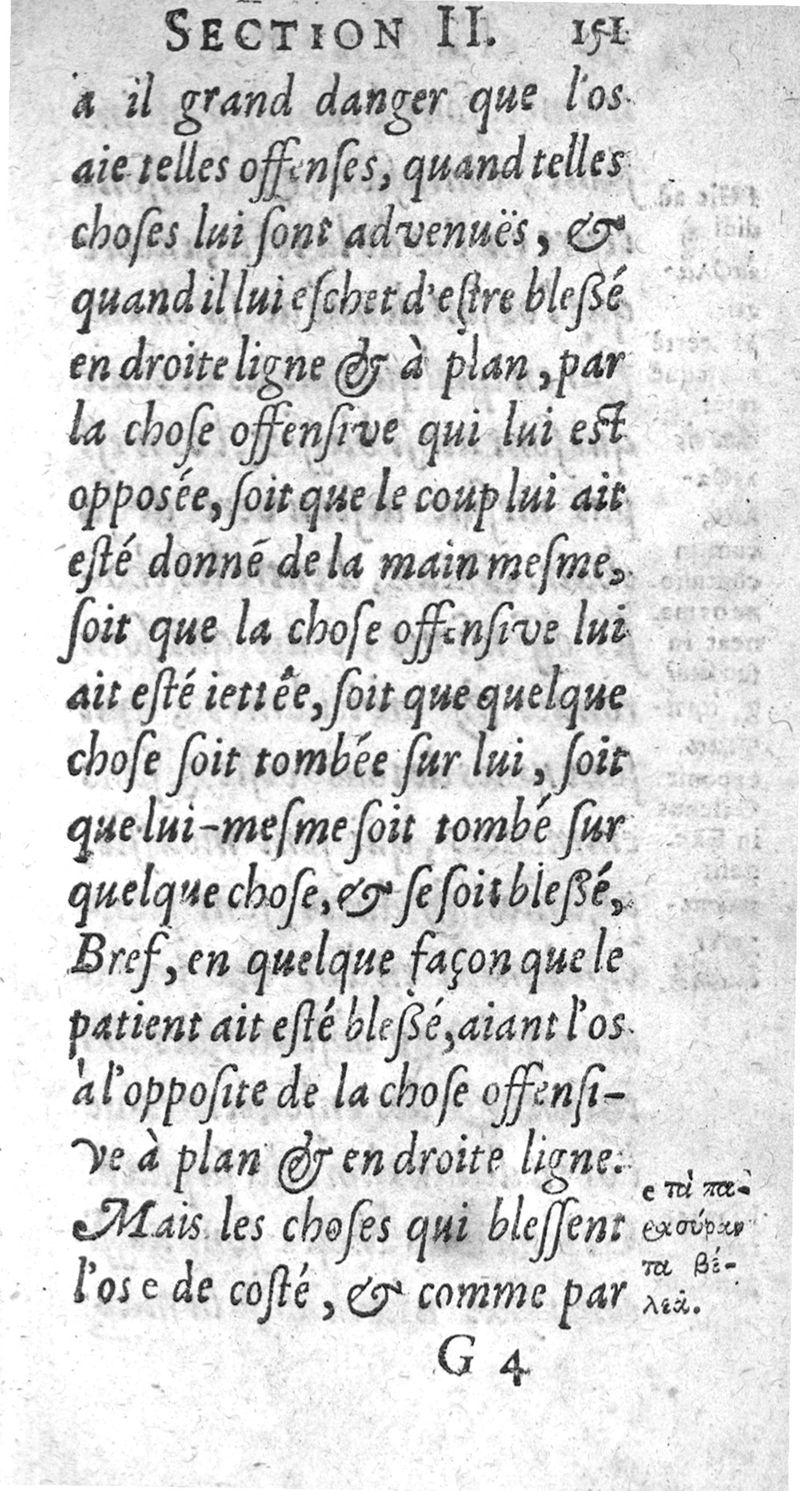 SECTION II. 151
a il grand danger que l'os
aie telles offenſes, quand telles
choſes lui ſont advenuës, &
quand il lui eſchet d'eſtre bleßé
en droite ligne & à plan, par
la choſe offenſive qui lui eſt
opposée, ſoit que le coup lui ait
eſté donné de la main meſme,
ſoit que la choſe offenſive lui
ait eſté iettée, ſoit que quelque
choſe ſoit tombée ſur lui, ſoit
que lui-meſme ſoit tombé ſur
quelque choſe, & ſe ſoit bleßé,
Bref, en quelque façon que le
patient ait eſté bleßé, aiant l'os
à l'oppoſite de la choſe offenſi-
ve à plan & en droite ligne.
Mais les choſes qui bleſſent
l'os e de coſté, & comme par
e τὰ πα-
ρασύραν
τα βέ-
λεα.
G 4